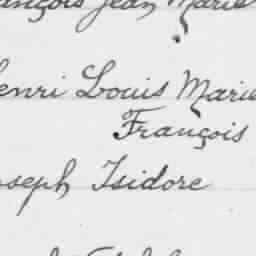 ançois Jean Marie
enri Louis Marie
François
oseph Isidore